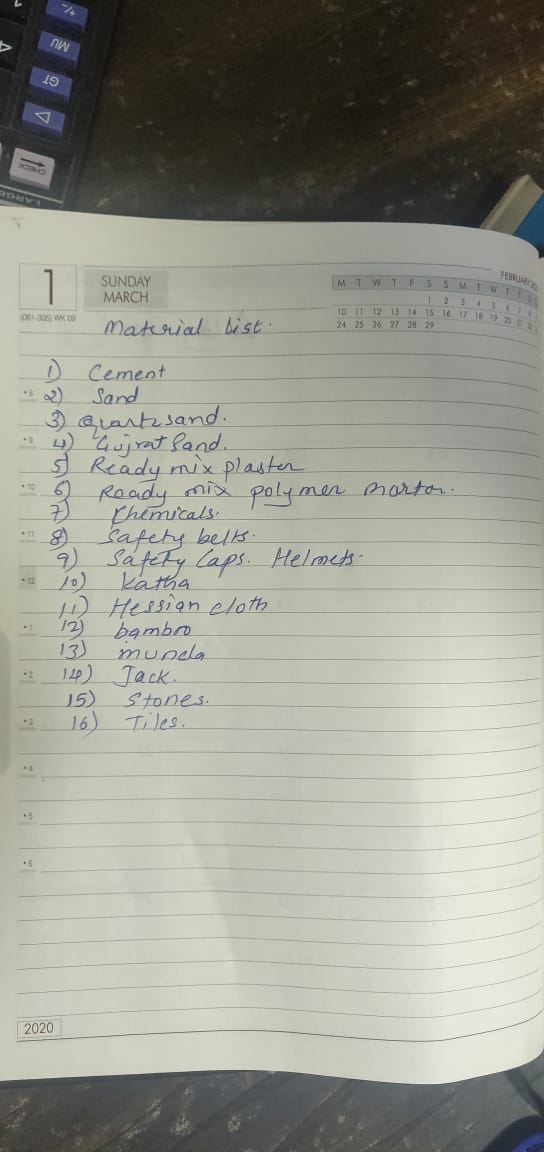 +/-
MU
GT
CHECK
LARGE
1
SUNDAY
MARCH
(061-305) WK 09
FEBRUARY
M T W T F S S M T W T F S
1 2 3 4 5 6 7 8
10 11 12 13 14 15 16 17 18 19 20 21 22
24 25 26 27 28 29
Material List.
1) Cement
•8 2) Sand
3) Quartzsand.
•9 4) Gujrat Sand.
5) Ready mix plaster
•10 6) Ready mix polymer mortor.
7) Khemicals.
•11 8) Safety belts.
9) Safety Caps. Helmets.
•12 10) Katha
11) Hessian cloth
•1 12) bambro
13) munda
•2 14) Jack.
15) Stones.
•3 16) Tiles.
•4
•5
•6
2020